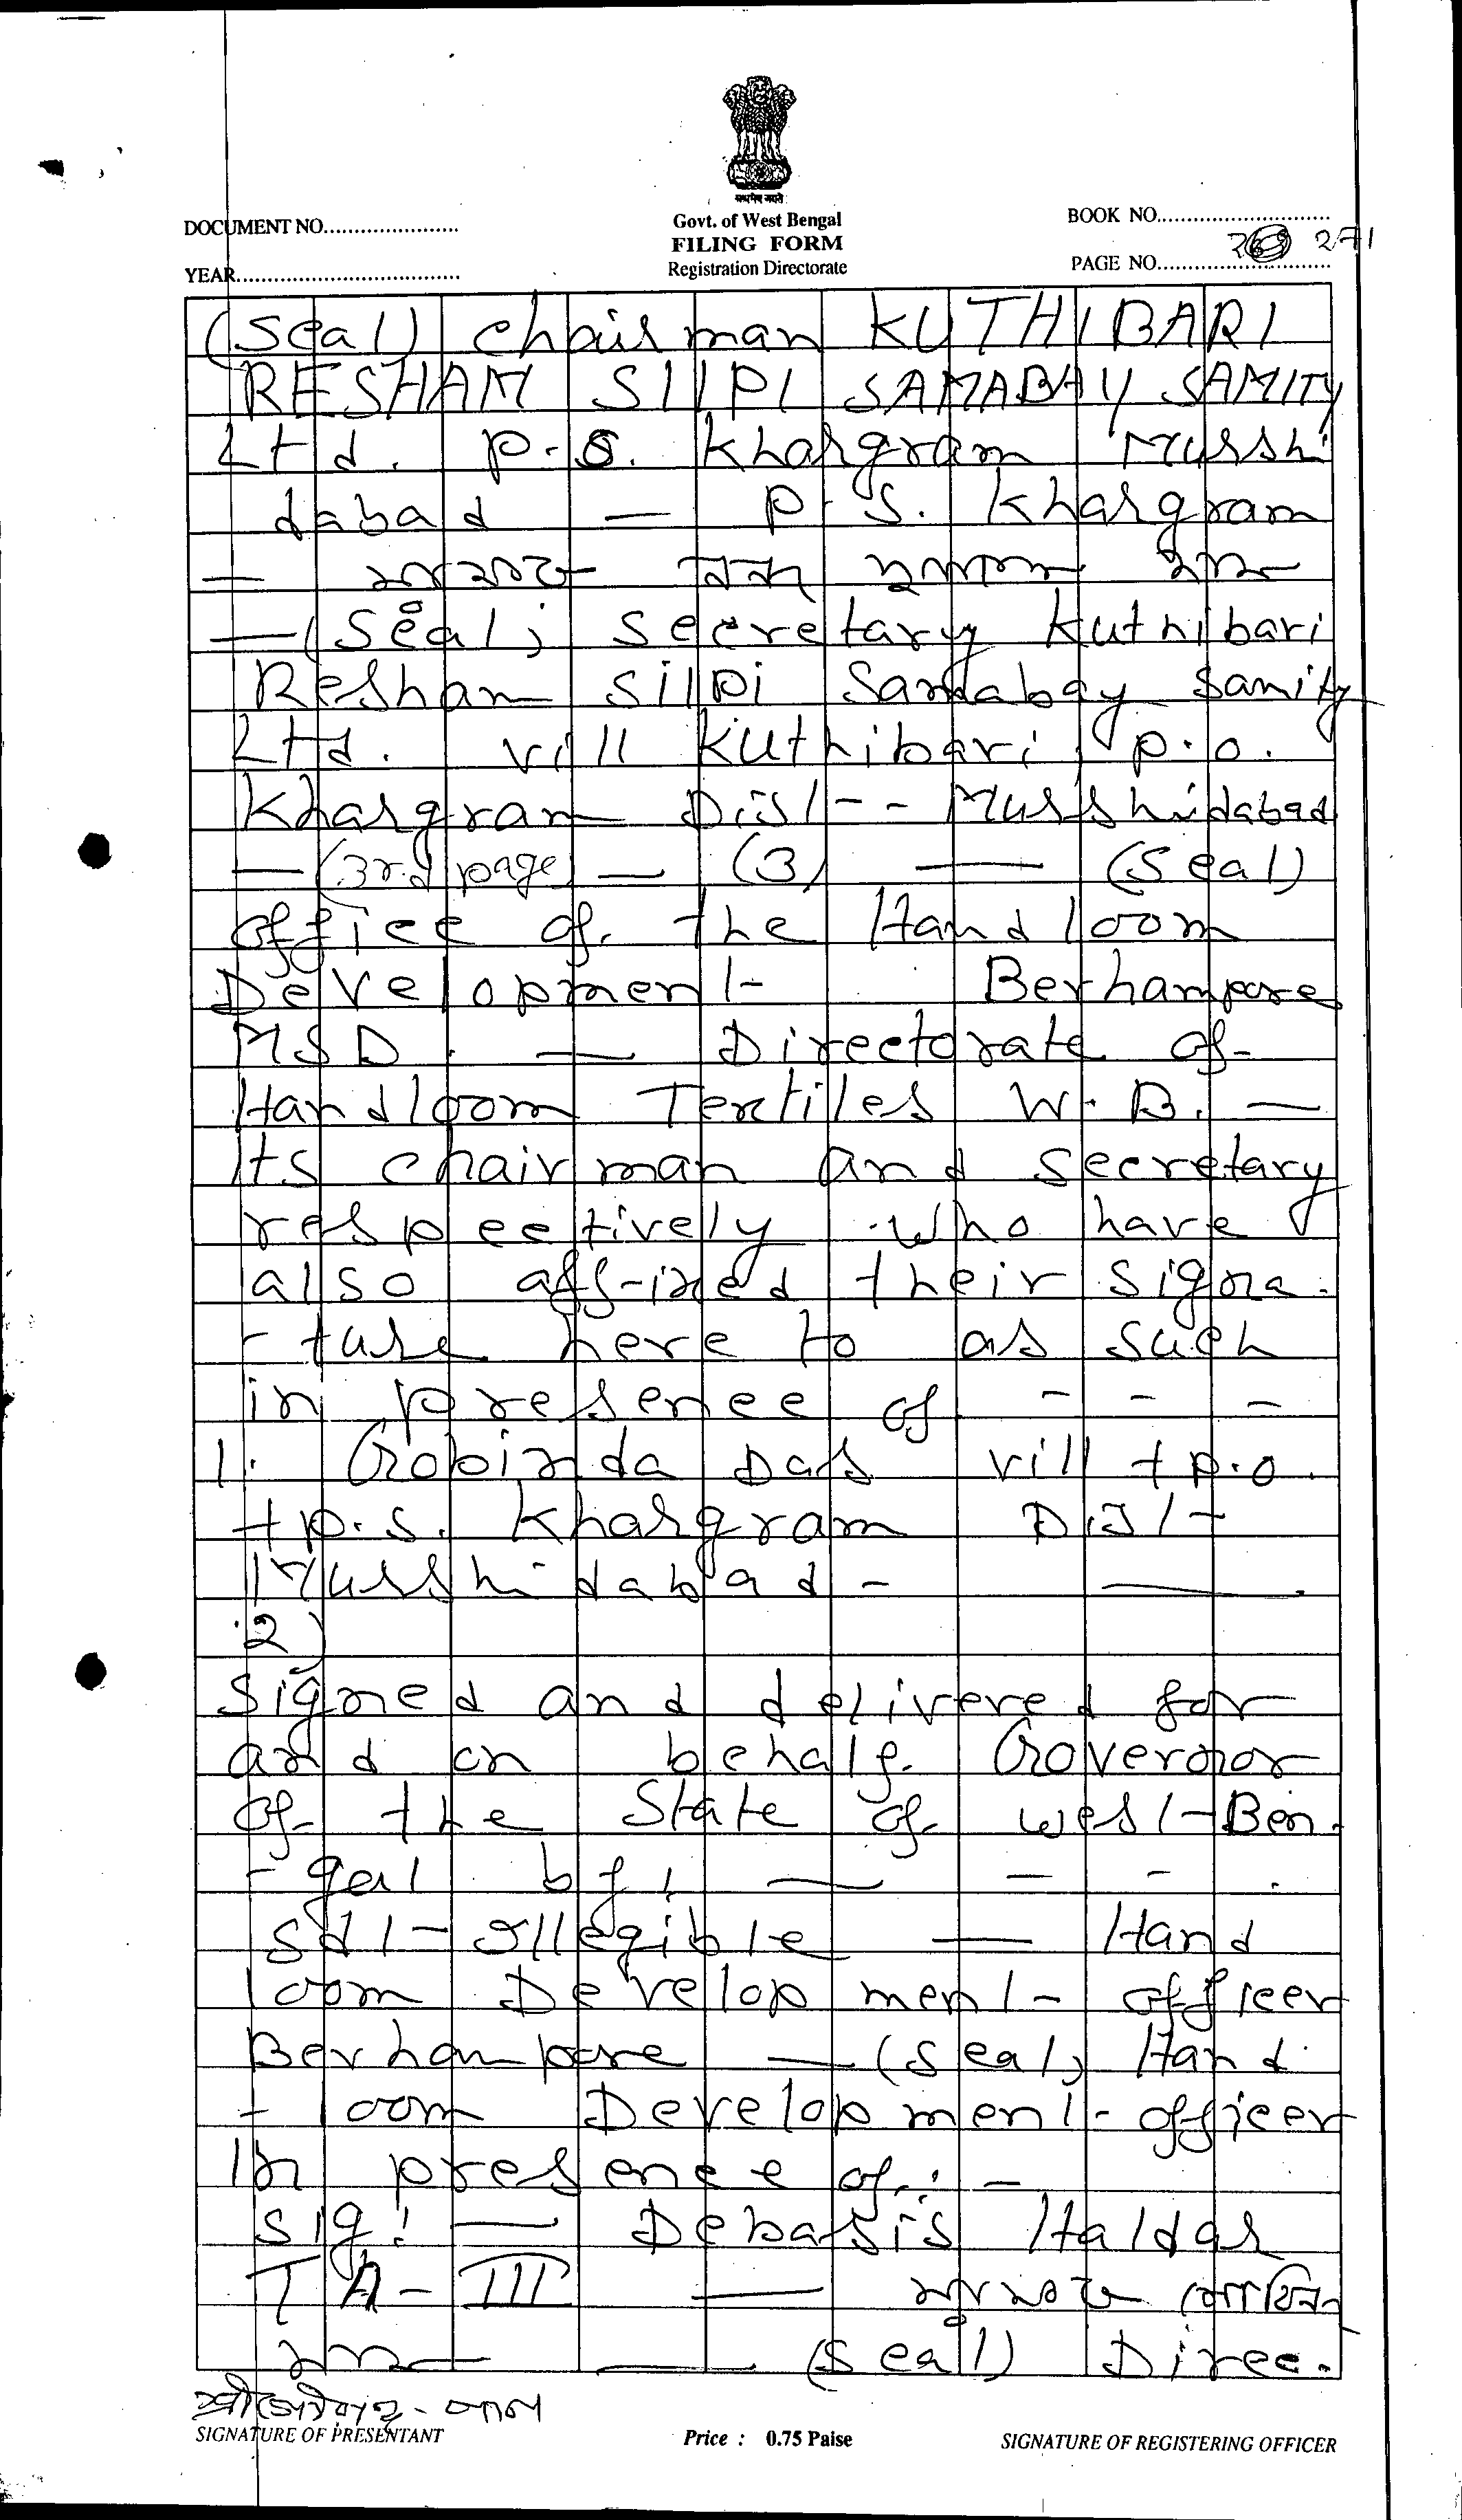 सत्यमेव जयते
DOCUMENT NO......................
Govt. of West Bengal
BOOK NO............................
FILING FORM
271
YEAR....................................
Registration Directorate
PAGE NO............................
(Seal) Chairman KUTHIBARI
RESHAM SIIPI SAMABAY SAMITY
Ltd. P.O. Khargram Murshi
dabad — P.S. Khargram
—(Seal) Secretary Kuthibari
Resham Silpi Samabay Samity
Ltd. vill Kuthibari, P.O.
Khargram Dist-- Murshidabad
— (3rd page) — (3) — (Seal)
office of the Handloom
Development Berhampore
MSD. — Directorate of
Handloom Textiles W.B. —
Its chairman and secretary
respectively who have
also affixed their signa-
-ture here to as such
in presence of - - -
1. Gobinda Das vill + P.O.
+P.S. Khargram Dist-
Murshidabad- —
2)
Signed and delivered for
and on behalf Governor
of the State of West-Ben-
-gal by: — - -
Sd/- Illegible — Hand
loom Development officer
Berhampore — (Seal) Hand
- loom Development officer
In presence of: -
Sig: — Debasis Haldar
TA-III —
— (Seal) Direc-
SIGNATURE OF PRESENTANT
Price : 0.75 Paise
SIGNATURE OF REGISTERING OFFICER